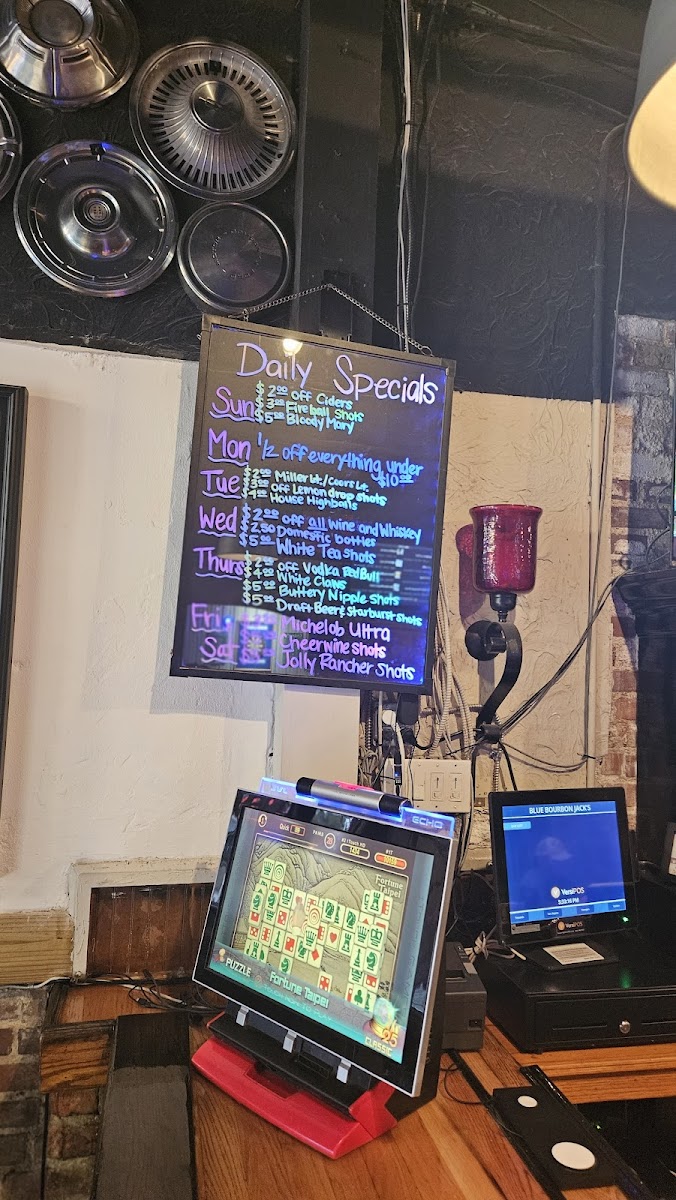 Daily Specials
Sun $2.00 off Ciders
$3.00 Fireball Shots
$5.00 Bloody Mary
Mon 1/2 off everything under $10.00
Tue $2.00 Miller Lt./Coors Lt.
$3.00 off Lemon drop shots
$4.00 House Highballs
Wed $2.00 off all Wine and Whiskey
$2.50 Domestic bottles
$5.00 White Tea shots
Thurs $2.00 off Vodka RedBull
$4.00 White Claws
$5.00 Buttery Nipple shots
$5.00 Draft Beer & Starburst shots
Fri Michelob Ultra
Sat Cheerwine shots
Jolly Rancher Shots
JVL
ECHO
Fortune
Taipei
PUZZLE
Fortune Taipei
CLASSIC
BLUE BOURBON JACK'S
VersiPOS